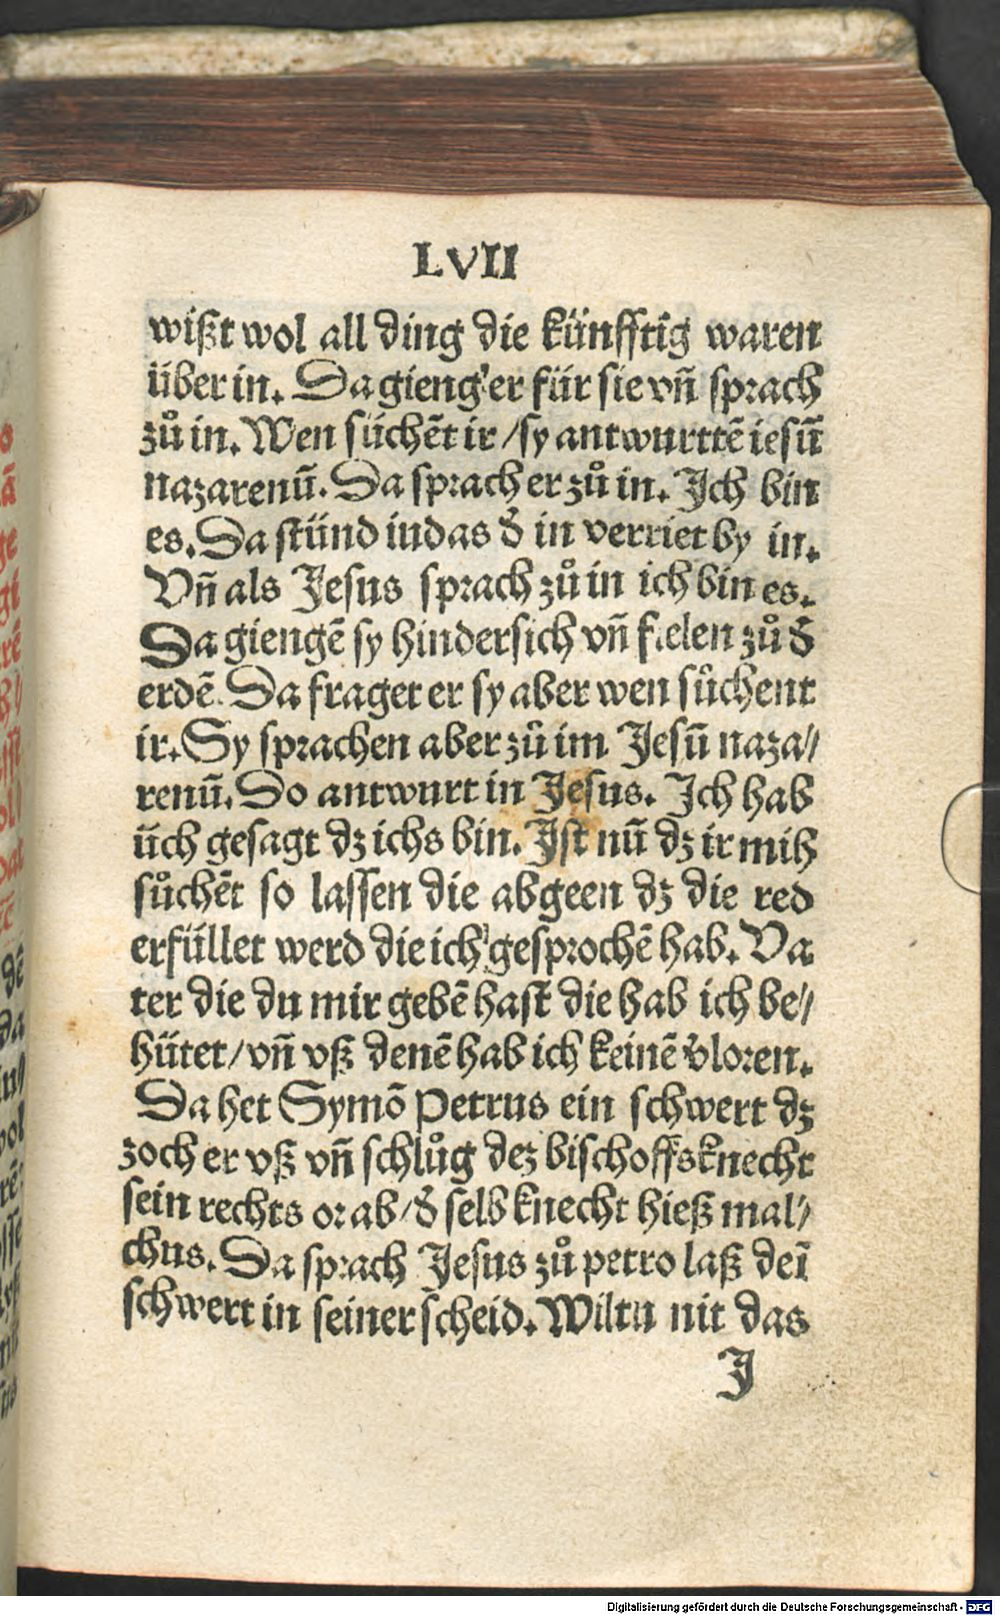 LVII
wißt wol all ding die künfftig waren
über in. Da gieng er für sie vñ sprach
zů in. Wen süchẽt ir / sy antwurttẽ iesũ
nazarenũ. Da sprach er zů in. Ich bin
es. Da stünd iudas d̕ in verriet by in.
Vñ als Jesus sprach zů in ich bin es.
Da giengẽ sy hindersich vñ fielen zů d̕
erdẽ. Da fraget er sy aber wen sůchent
ir. Sy sprachen aber zů im Jesũ naza⸗
renũ. Do antwurt in Jesus. Ich hab
üch gesagt dz ichs bin. Ist nũ dz ir mih
sůchẽt so lassen die abgeen dz die red
erfüllet werd die ich gesprochẽ hab. Va
ter die du mir gebẽ hast die hab ich be⸗
hütet / vñ vß denẽ hab ich keinẽ v̕loren.
Da het Symõ Petrus ein schwert dz
zoch er vß vñ schlůg dez bischoffs knecht
sein rechts or ab / d̕ selb knecht hieß mal⸗
chus. Da sprach Jesus zů petro laß deĩ
schwert in seiner scheid. Wiltu nit das
J
Digitalisierung gefördert durch die Deutsche Forschungsgemeinschaft - DFG